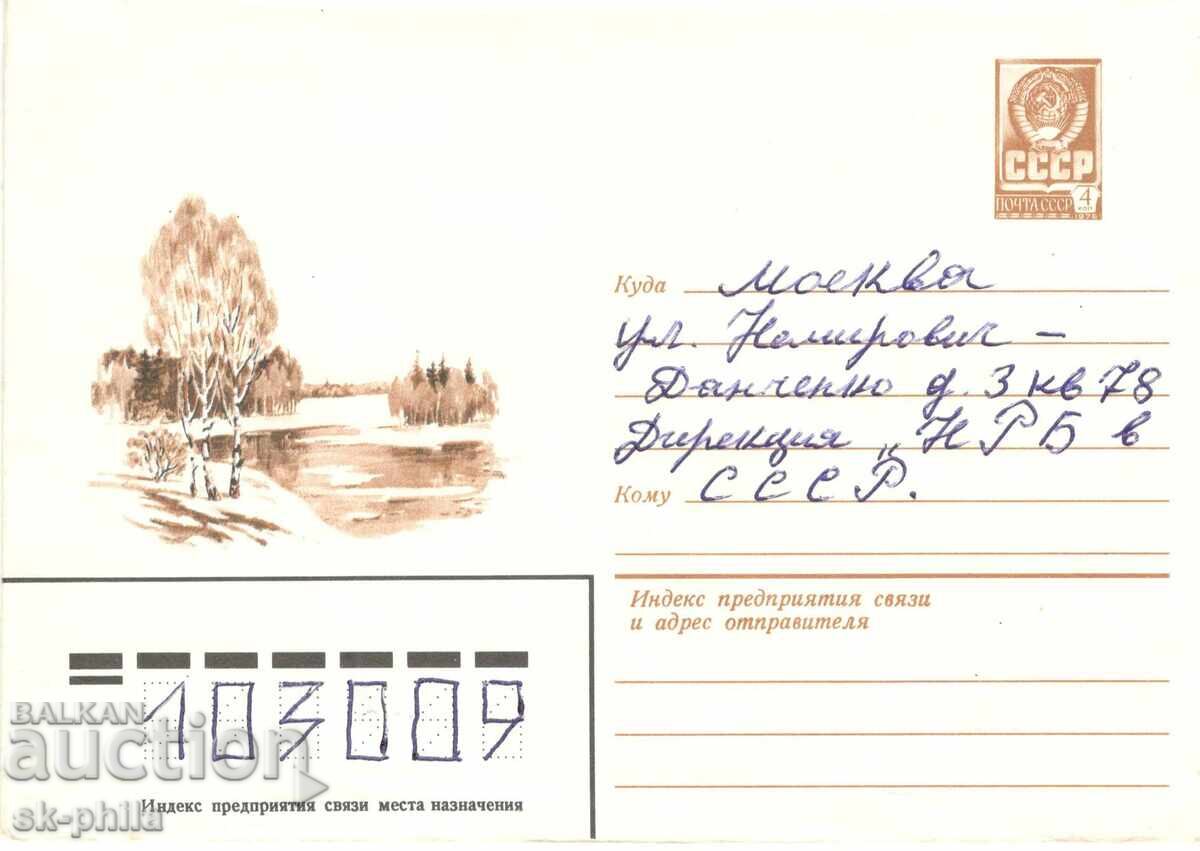 СССР
ПОЧТА СССР 4 КОП
1978
Куда Москва
ул. Немирович –
Данченко д. 3 кв 78
Дирекция „НРБ в
Кому СССР.
Индекс предприятия связи
и адрес отправителя
103009
Индекс предприятия связи места назначения
BALKAN
auction
sk-phila